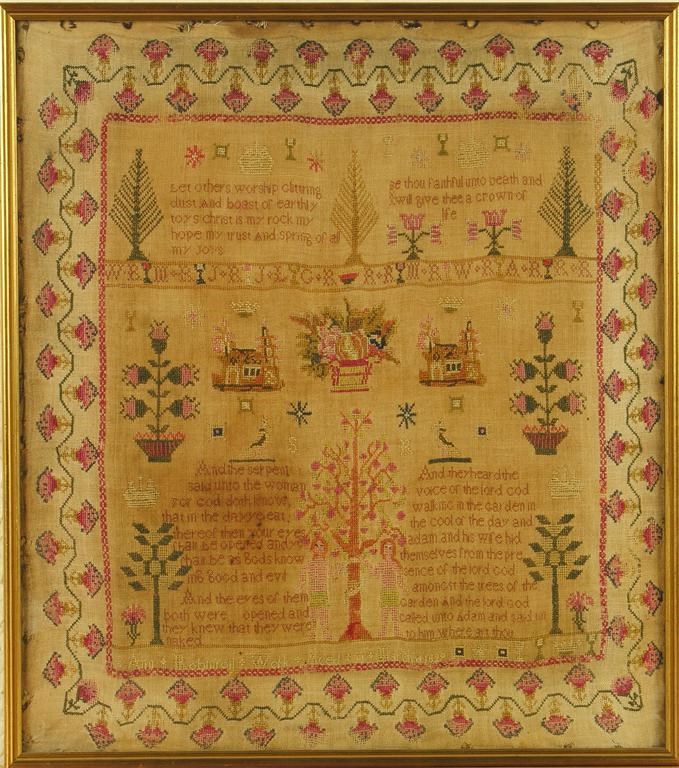 Let others worship glittring
dust And boast of earthly
toys christ is my rock my
hope my trust And spring of al
my Joys
Be thou faithful unto Death and
I will give thee a crown of
life
W R M R J R J L G R R R M R W R A R R R
And the serpent
said unto the woman
For God doth know
that in the day ye eat
thereof then your eyes
shall be opened and ye
shall be as Gods know
ing Good and evil
And the eyes of them
both were opened and
they knew that they were
naked
And they heard the
voice of the lord God
walking in the Garden in
the cool of the day and
adam and his wife hid
themselves from the pre
sence of the lord God
amongst the trees of the
Garden And the lord God
called unto Adam and said un
to him where art thou
Ann Robinson Work